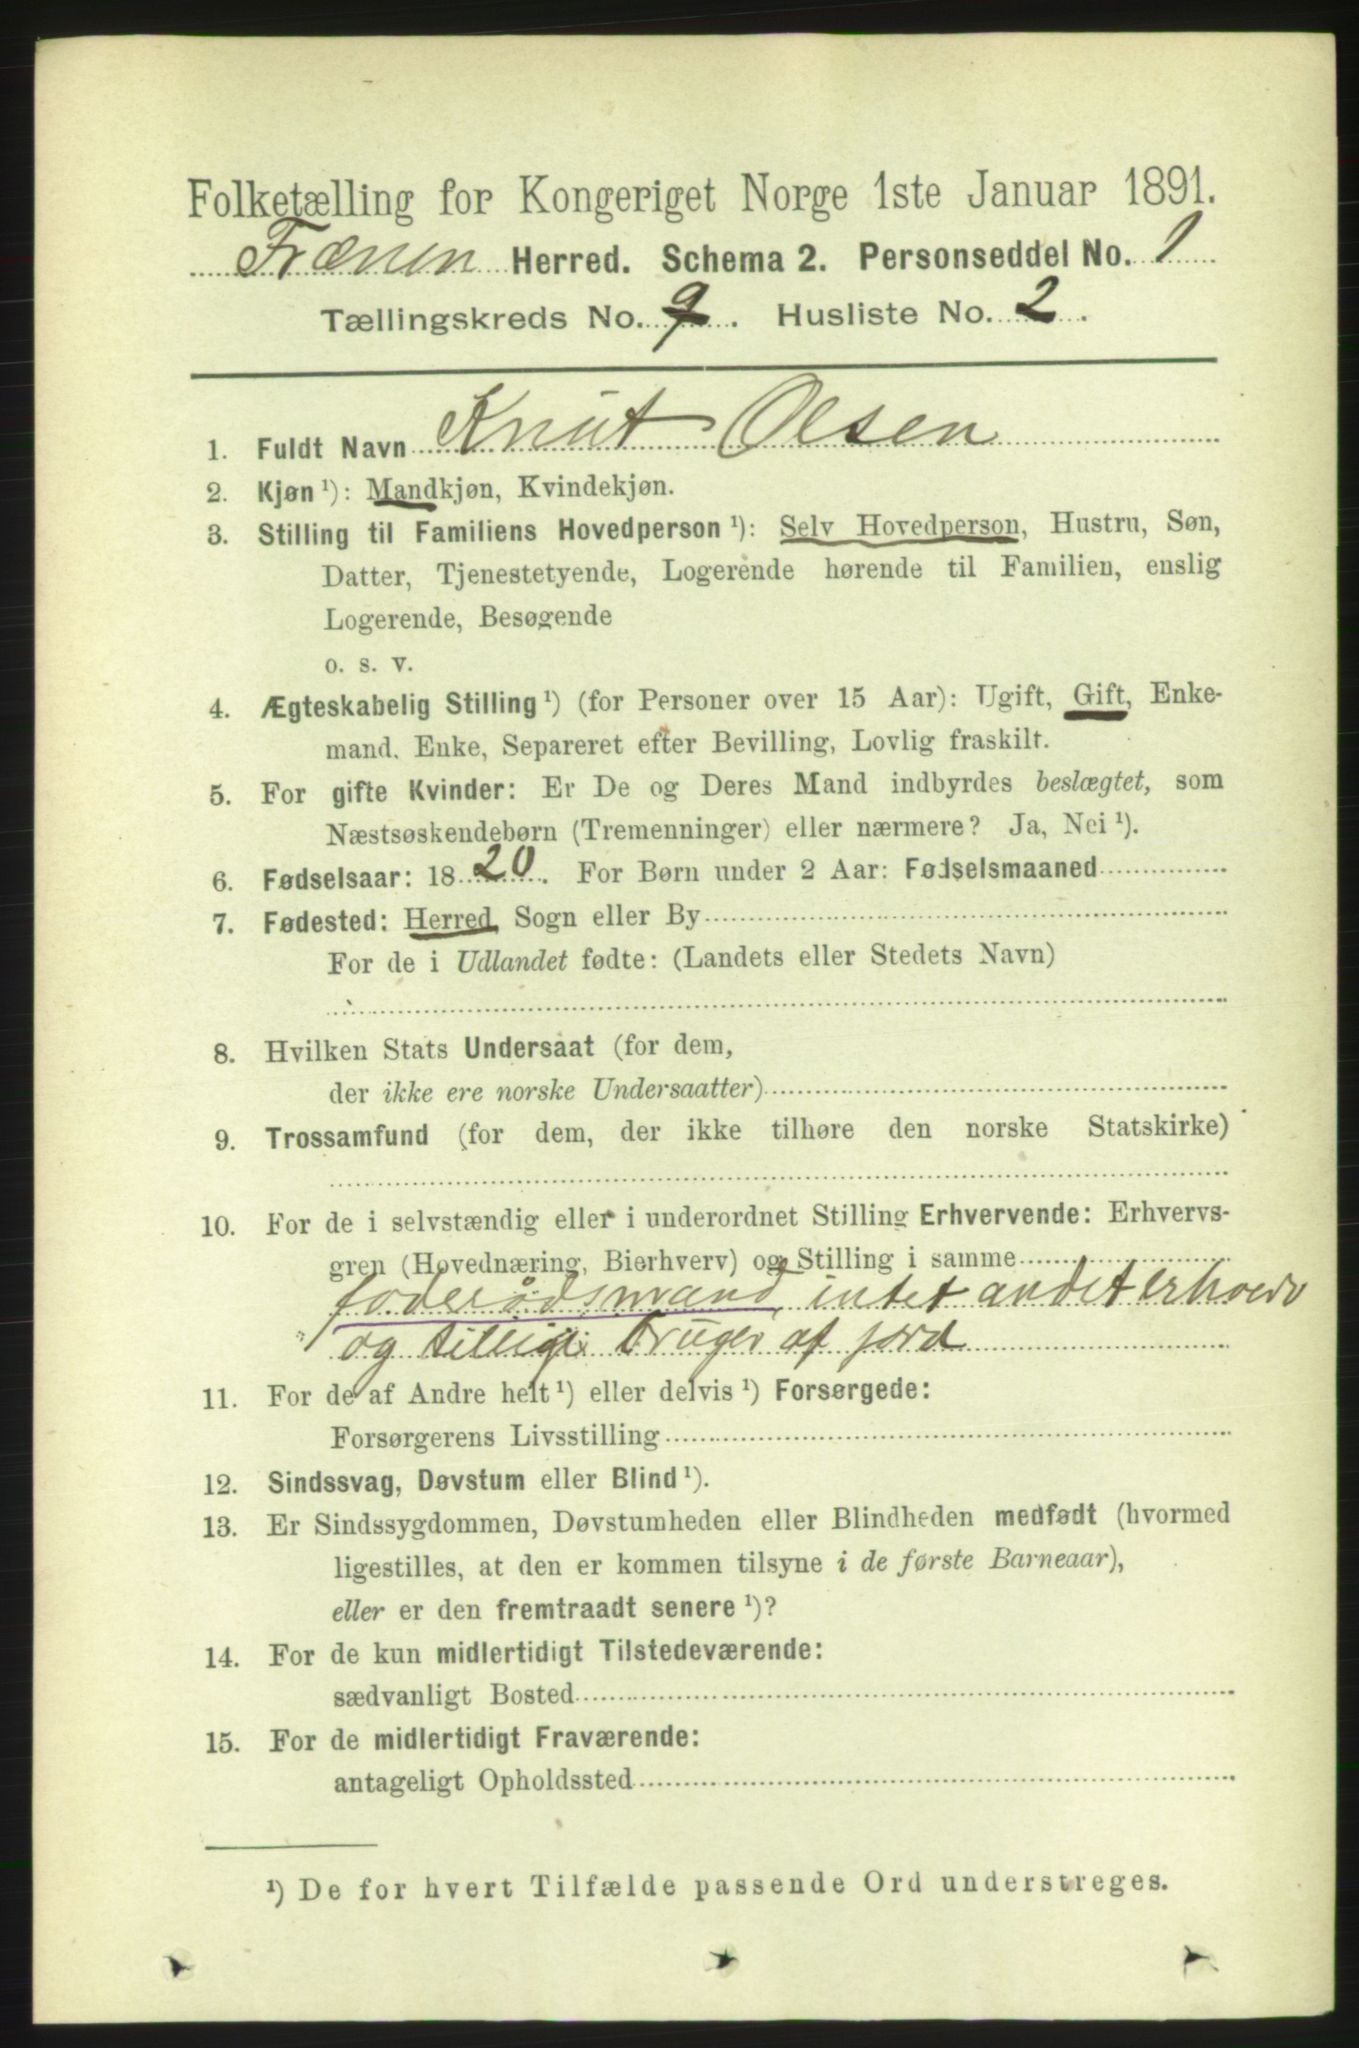 Folketælling for Kongeriget Norge 1ste Januar 1891.
Frænen Herred. Schema 2. Personseddel No. 1
Tællingskreds No. 9. Husliste No. 2.
1. Fuldt Navn Knut Olsen
2. Kjøn ¹): Mandkjøn, Kvindekjøn.
3. Stilling til Familiens Hovedperson ¹): Selv Hovedperson, Hustru, Søn,
Datter, Tjenestetyende, Logerende hørende til Familien, enslig
Logerende, Besøgende
o. s. v.
4. Ægteskabelig Stilling ¹) (for Personer over 15 Aar): Ugift, Gift, Enke-
mand, Enke, Separeret efter Bevilling, Lovlig fraskilt.
5. For gifte Kvinder: Er De og Deres Mand indbyrdes beslægtet, som
Næstsøskendebørn (Tremenninger) eller nærmere? Ja, Nei ¹).
6. Fødselsaar: 1820. For Børn under 2 Aar: Fødselsmaaned
7. Fødested: Herred, Sogn eller By
For de i Udlandet fødte: (Landets eller Stedets Navn)
8. Hvilken Stats Undersaat (for dem,
der ikke ere norske Undersaatter)
9. Trossamfund (for dem, der ikke tilhøre den norske Statskirke)
10. For de i selvstændig eller i underordnet Stilling Erhvervende: Erhvervs-
gren (Hovednæring, Bierhverv) og Stilling i samme
foderødsmand, intet andet erhverv
og tillige bruger af jord
11. For de af Andre helt ¹) eller delvis ¹) Forsørgede:
Forsørgerens Livsstilling
12. Sindssvag, Døvstum eller Blind ¹).
13. Er Sindssygdommen, Døvstumheden eller Blindheden medfødt (hvormed
ligestilles, at den er kommen tilsyne i de første Barneaar),
eller er den fremtraadt senere ¹)?
14. For de kun midlertidigt Tilstedeværende:
sædvanligt Bosted
15. For de midlertidigt Fraværende:
antageligt Opholdssted
¹) De for hvert Tilfælde passende Ord understreges.